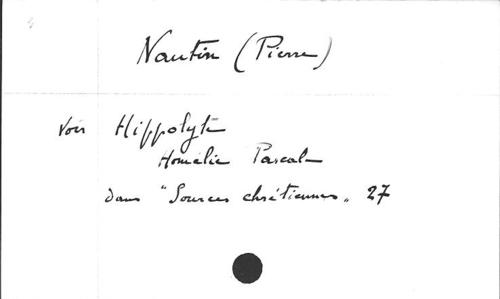 Nautin (Pierre)
Voir Hippolyte
Homélie Pascale
dans "Sources chrétiennes" 27